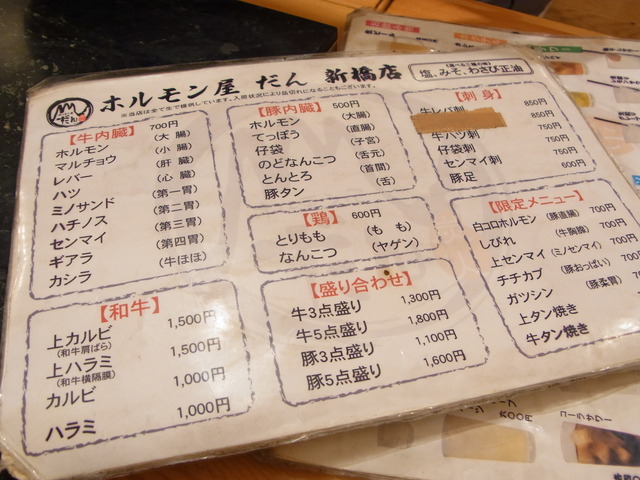 ホルモン屋 だん 新橋店
塩、みそ、わさび正油
だん
【牛内臓】 700円
ホルモン (大 腸)
マルチョウ (小 腸)
レバー (肝 臓)
ハツ (心 臓)
ミノサンド (第一胃)
ハチノス (第二胃)
センマイ (第三胃)
ギアラ (第四胃)
カシラ (牛ほほ)
【和牛】
上カルビ 1,500円
(和牛肩ばら)
上ハラミ 1,500円
(和牛横隔膜)
カルビ 1,000円
ハラミ 1,000円
【豚内臓】 500円
ホルモン (大腸)
てっぽう (直腸)
仔袋 (子宮)
のどなんこつ (舌元)
とんとろ (首間)
豚タン (舌)
【鶏】 600円
とりもも (も も)
なんこつ (ヤゲン)
【盛り合わせ】
牛3点盛り 1,300円
牛5点盛り 1,800円
豚3点盛り 1,100円
豚5点盛り 1,600円
【刺 身】
牛レバ刺 850円
850円
牛ハツ刺 750円
仔袋刺 750円
センマイ刺 750円
豚足 600円
【限定メニュー】
白コロホルモン (豚直腸) 700円
しびれ (牛胸腺) 700円
上センマイ (ミノセンマイ) 700円
チチカブ (豚おっぱい) 700円
ガツシン (豚柔胃) 700円
上タン焼き
牛タン焼き